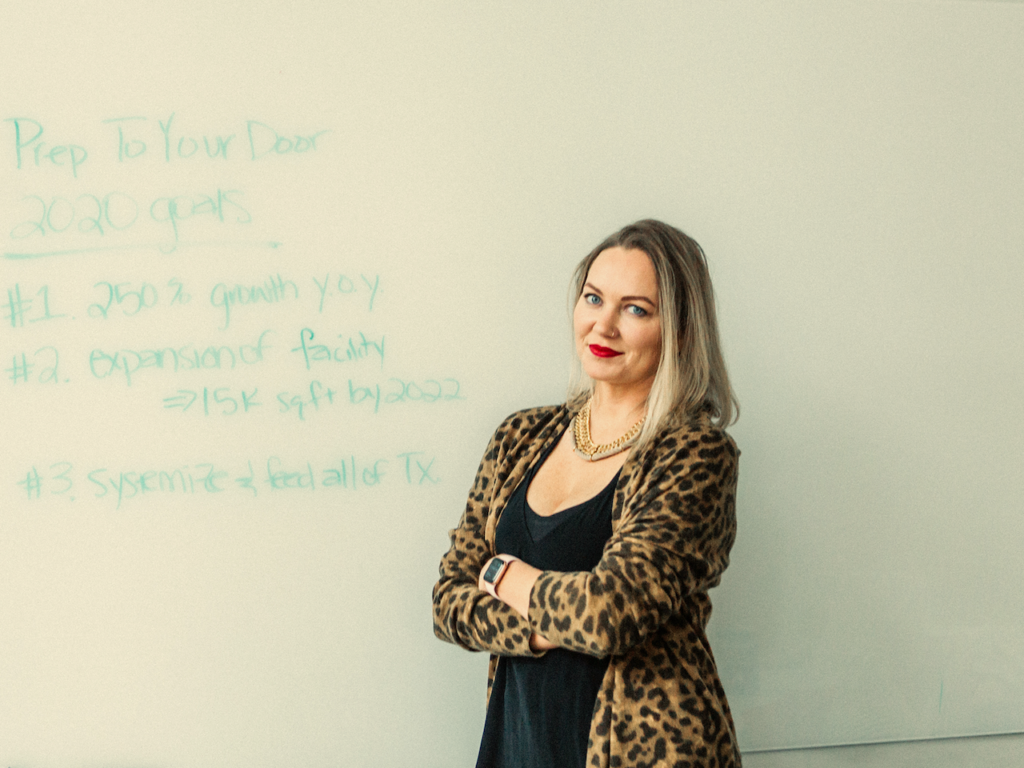 Prep To Your Door
2020 goals
#1. 250% growth y.o.y.
#2. expansion of facility
⇒15K sqft by 2022
#3. Systemize & feed all of TX